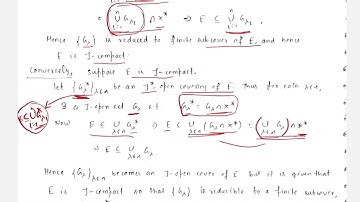 = (⋃ᵢ₌₁ⁿ Gλᵢ) ∩ X* ⇒ E ⊆ ⋃ᵢ₌₁ⁿ Gλᵢ .
Hence {Gλ} is reduced to finite subcover of E, and hence
E is J-compact.
Conversely, suppose E is J-compact.
Let {G*λ}λ∈Λ be an J*-open covering of E. Thus for each λ∈Λ,
∃ a J-open set Gλ s.t. G*λ = Gλ ∩ X*
Now E ⊆ ⋃λ∈Λ G*λ ⇒ E ⊆ ⋃λ∈Λ (Gλ ∩ X*) = (⋃λ∈Λ Gλ) ∩ X*
⇒ E ⊆ ⋃λ∈Λ Gλ
Hence {Gλ}λ∈Λ becomes an J-open cover of E but it is given that
E is J-compact so that {Gλ} is reducible to a finite subcover,